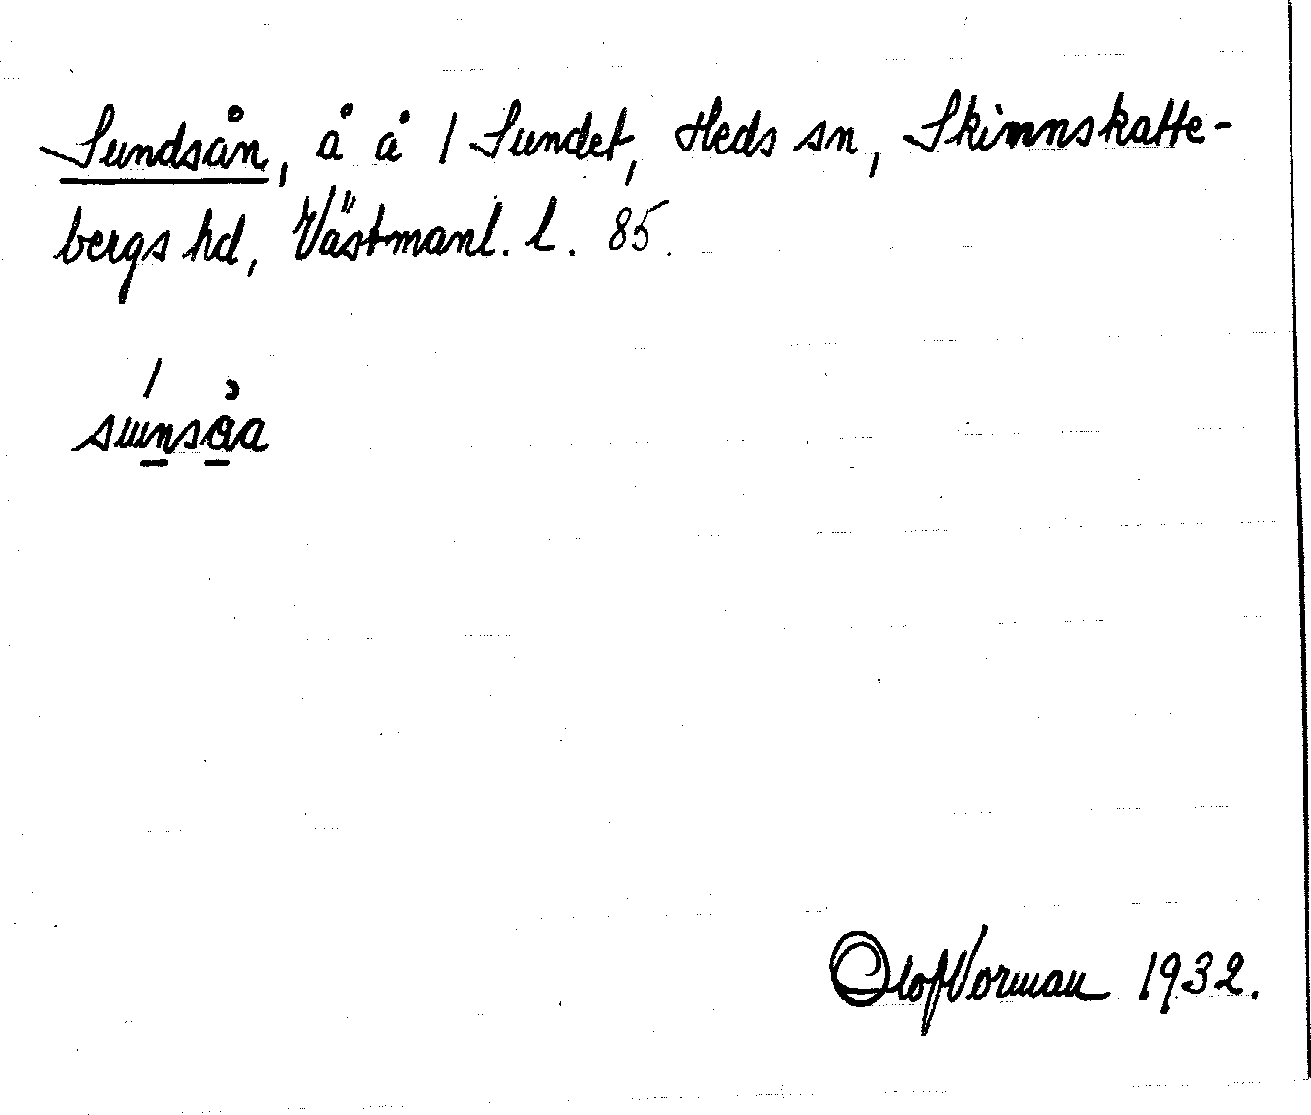 Sundsån, å å / Sundet, Heds sn, Skinnskatte-
bergs hd, Västmanl. l. 85.
sunsåa
Olof Norman 1932.